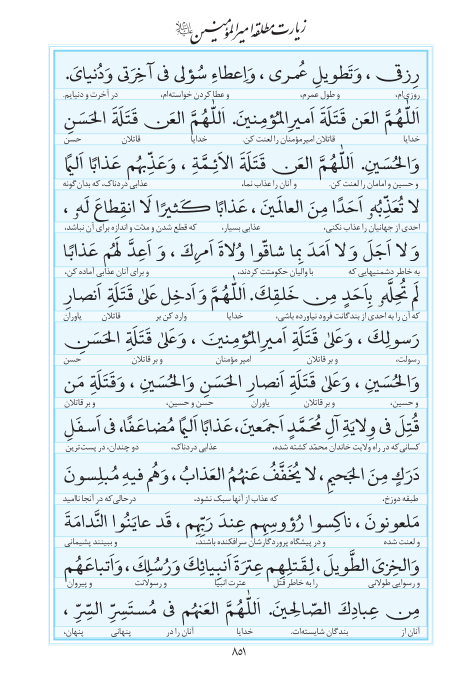 زیارت مطلقه امیرالمؤمنین
رِزقی ، وَتَطویلِ عُمری ، وَاِعطاءِ سُؤلی فی آخِرَتی وَدُنیایَ.
روزی‌ام، و طول عمرم، و عطا کردن خواسته‌ام، در آخرت و دنیایم.
اَللّهُمَّ العَن قَتَلَةَ اَمیرِالمُؤمِنینَ. اَللّهُمَّ العَن قَتَلَةَ الحَسَنِ
خدایا قاتلان امیرمؤمنان را لعنت کن. خدایا قاتلان حسن
وَالحُسَینِ. اَللّهُمَّ العَن قَتَلَةَ الاَئِمَّةِ ، وَعَذِّبهُم عَذابًا اَلیمًا
و حسین و امامان را لعنت کن. و آنان را عذاب نما، عذابی دردناک، که بدان‌گونه
لا تُعَذِّبُهُ و اَحَدًا مِنَ العالَمینَ ، عَذابًا کَثیرًا لَا انقِطاعَ لَهُ ،
احدی از جهانیان را عذاب نکنی، عذابی بسیار، که قطع شدن و مدّت و اندازه برای آن نباشد،
وَ لا اَجَلَ وَ لا اَمَدَ بِما شاقّوا وُلاةَ اَمرِکَ ، وَ اَعِدَّ لَهُم عَذابًا
به خاطر دشمنیهایی که با والیان حکومتت کردند، و برای آنان عذابی آماده کن،
لَم تُحِلَّهُ بِاَحَدٍ مِن خَلقِکَ. اَللّهُمَّ وَ اَدخِل عَلیٰ قَتَلَةِ اَنصارِ
که آن را به احدی از بندگانت فرود نیاورده باشی. خدایا وارد کن بر قاتلان یاوران
رَسولِکَ ، وَعَلیٰ قَتَلَةِ اَمیرِالمُؤمِنینَ ، وَعَلیٰ قَتَلَةِ الحَسَنِ
رسولت، و بر قاتلان امیر مؤمنان و بر قاتلان حسن
وَالحُسَینِ ، وَعَلیٰ قَتَلَةِ اَنصارِ الحَسَنِ وَالحُسَینِ ، وَقَتَلَةِ مَن
و حسین، و بر قاتلان یاوران حسن و حسین، و بر قاتلان
قُتِلَ فی وِلایَةِ آلِ مُحَمَّدٍ اَجمَعینَ، عَذابًا اَلیمًا مُضاعَفًا، فی اَسفَلِ
کسانی که در راه ولایت خاندان محمّد کشته شده، عذابی دردناک، دو چندان، در پست‌ترین
دَرَکٍ مِنَ الجَحیمِ ، لا یُخَفَّفُ عَنهُمُ العَذابُ ، وَهُم فیهِ مُبلِسونَ
طبقه دوزخ، که عذاب از آنها سبک نشود، در حالی که در آنجا ناامید
مَلعونونَ ، ناکِسوا رُؤوسِهِم عِندَ رَبِّهِم ، قَد عایَنُوا النَّدامَةَ
و لعنت شده و در پیشگاه پروردگارشان سرافکنده باشند، و ببینند پشیمانی
وَالخِزیَ الطَّویلَ ، لِقَتلِهِم عِترَةَ اَنبِیائِکَ وَرُسُلِکَ، وَاَتباعَهُم
و رسوایی طولانی را به خاطر قتل عترت انبیا و رسولانت و پیروان
مِن عِبادِكَ الصّالِحینَ. اَللّهُمَّ العَنهُم فی مُستَسِرِّ السِّرِّ ،
آنان از بندگان شایسته‌ات. خدایا آنان را در پنهانی پنهان،
۸۵۱